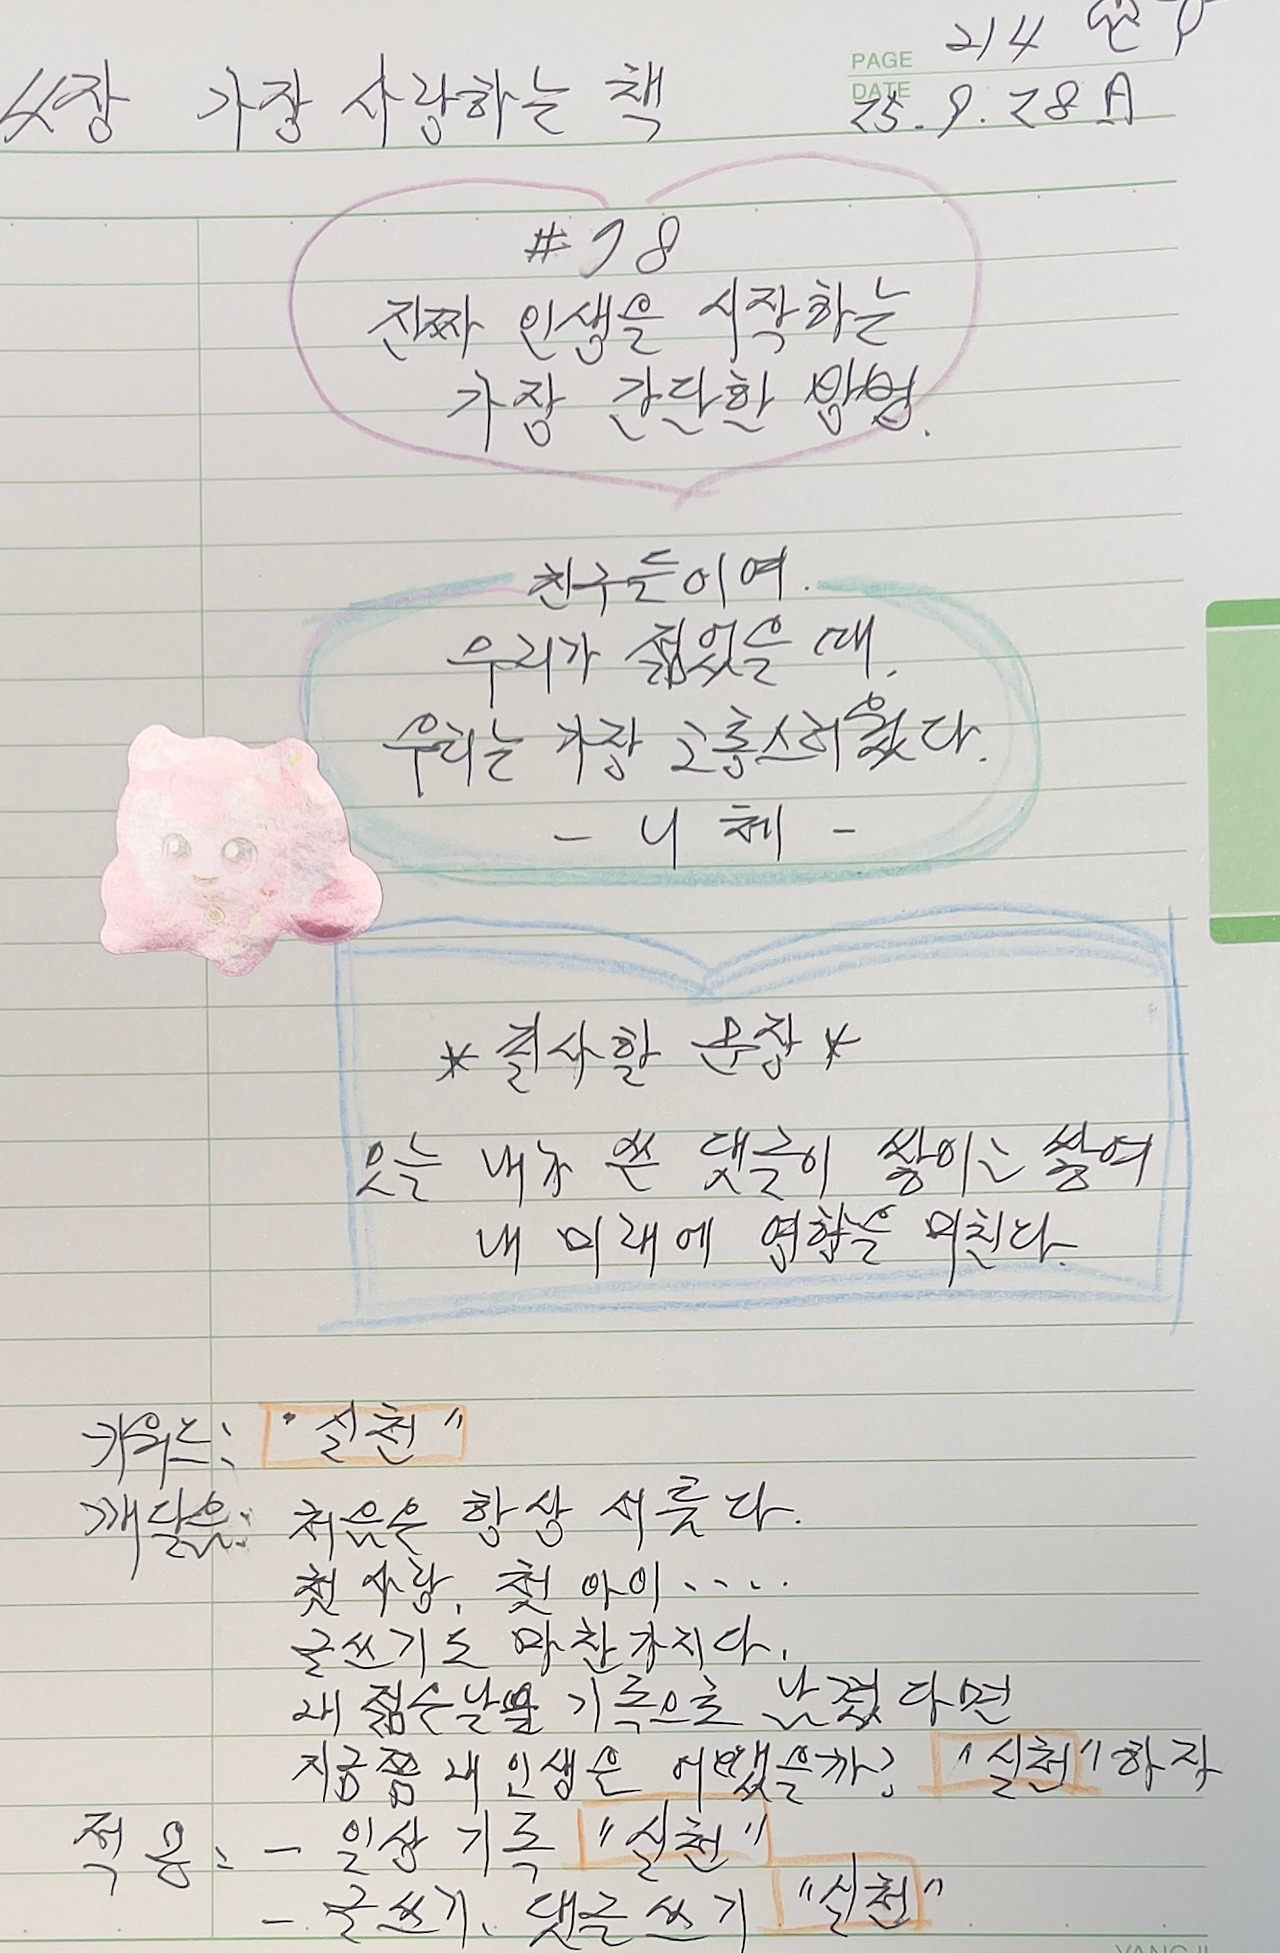 PAGE 214 순
4장 가장 사랑하는 책
DATE 25. 9. 28 A
#78
진짜 인생을 시작하는
가장 간단한 방법.
친구들이여.
우리가 젊었을 때,
우리는 가장 고통스러웠다.
- 니체 -
*필사할 문장*
오늘 내가 쓴 댓글이 쌓이고 쌓여
내 미래에 영향을 미친다.
키워드: "실천"
깨달음: 처음은 항상 서툴다.
첫 사랑, 첫 아이.....
글쓰기도 마찬가지다.
내 젊은 날을 기록으로 남겼다면
지금쯤 내 인생은 어땠을까? "실천"하자
적용: - 일상 기록 "실천"
- 글쓰기, 댓글 쓰기 "실천"